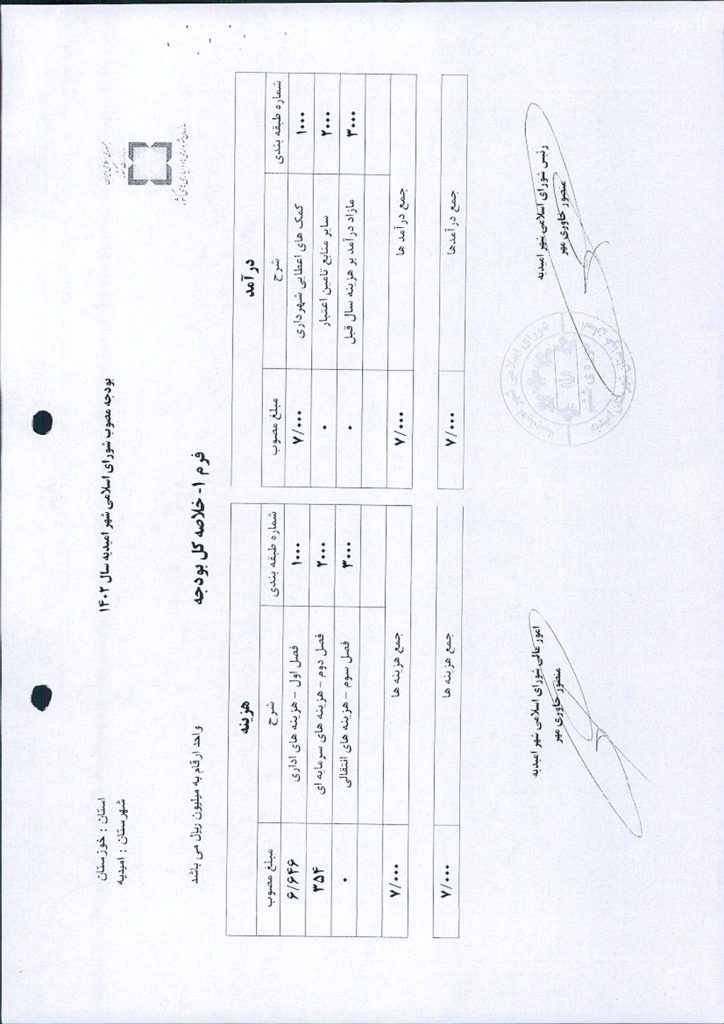 بودجه مصوب شورای اسلامی شهر امیدیه سال ۱۴۰۲
استان : خوزستان
شهرستان : امیدیه
فرم ۱- خلاصه کل بودجه
واحد ارقام به میلیون ریال می باشد
درآمد
شماره طبقه بندی شرح مبلغ مصوب
۱۰۰۰ کمک های اعطایی شهرداری ۷/۰۰۰
۲۰۰۰ سایر منابع تامین اعتبار ۰
۳۰۰۰ مازاد درآمد بر هزینه سال قبل ۰
جمع درآمد ها ۷/۰۰۰
جمع درآمدها ۷/۰۰۰
هزینه
شماره طبقه بندی شرح مبلغ مصوب
۱۰۰۰ فصل اول - هزینه های اداری ۶/۶۴۶
۲۰۰۰ فصل دوم - هزینه های سرمایه ای ۳۵۴
۳۰۰۰ فصل سوم - هزینه های انتقالی ۰
جمع هزینه ها ۷/۰۰۰
جمع هزینه ها ۷/۰۰۰
رئیس شورای اسلامی شهر امیدیه
منصور خاوری مهر
امور مالی شورای اسلامی شهر امیدیه
منصور خاوری مهر